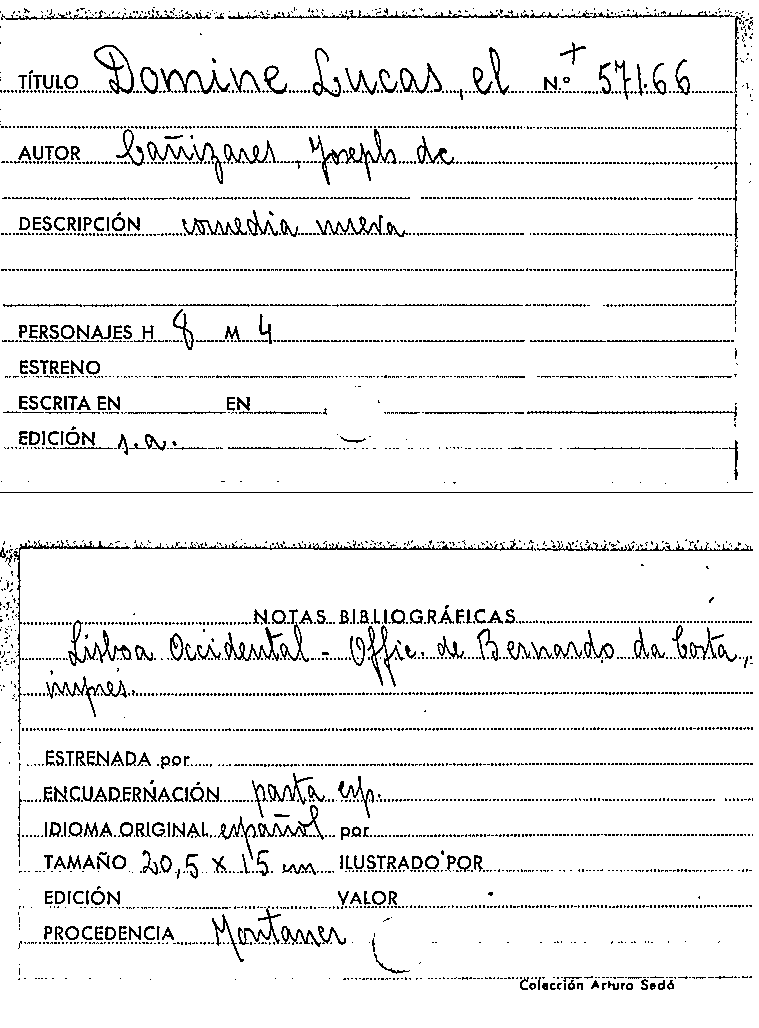 TÍTULO Domine Lucas, el N.º + 57166
AUTOR Cañizares, Joseph de
DESCRIPCIÓN comedia nueva
PERSONAJES H 8 M 4
ESTRENO
ESCRITA EN EN
EDICIÓN s.a.
NOTAS BIBLIOGRÁFICAS
Lisboa Occidental - Offic. de Bernardo da Costa,
impres.
ESTRENADA por
ENCUADERNACIÓN pasta esp.
IDIOMA ORIGINAL español por
TAMAÑO 20,5 x 15 cm ILUSTRADO POR
EDICIÓN VALOR
PROCEDENCIA Montaner
Colección Arturo Sedó